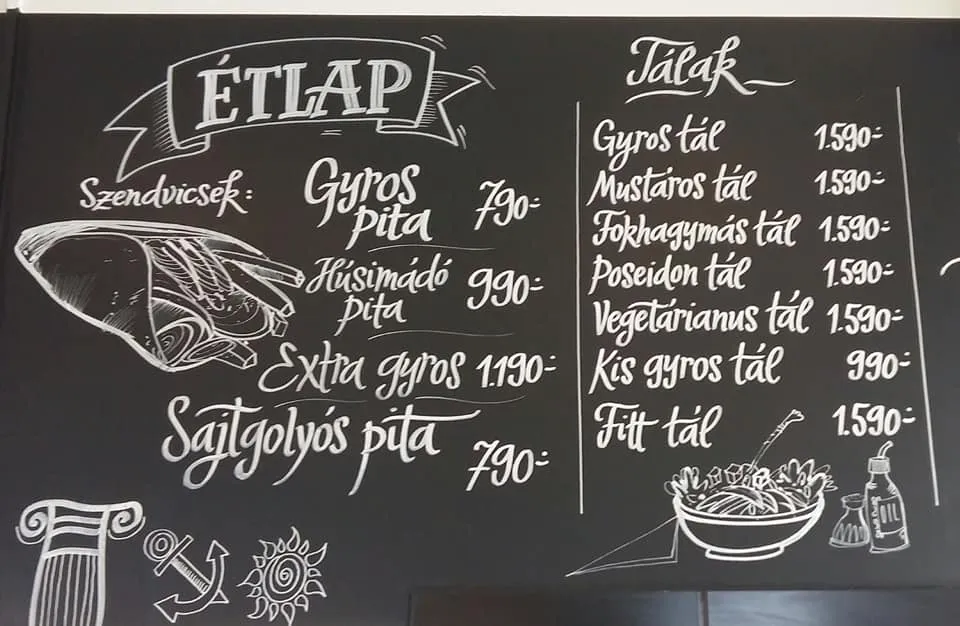 ÉTLAP
Szendvicsek:
Gyros pita 790.-
Húsimádó pita 990.-
Extra gyros 1.190.-
Sajtgolyós pita 790.-
Tálak
Gyros tál 1.590.-
Mustáros tál 1.590.-
Fokhagymás tál 1.590.-
Poseidon tál 1.590.-
Vegetárianus tál 1.590.-
Kis gyros tál 990.-
Fitt tál 1.590.-
OIL